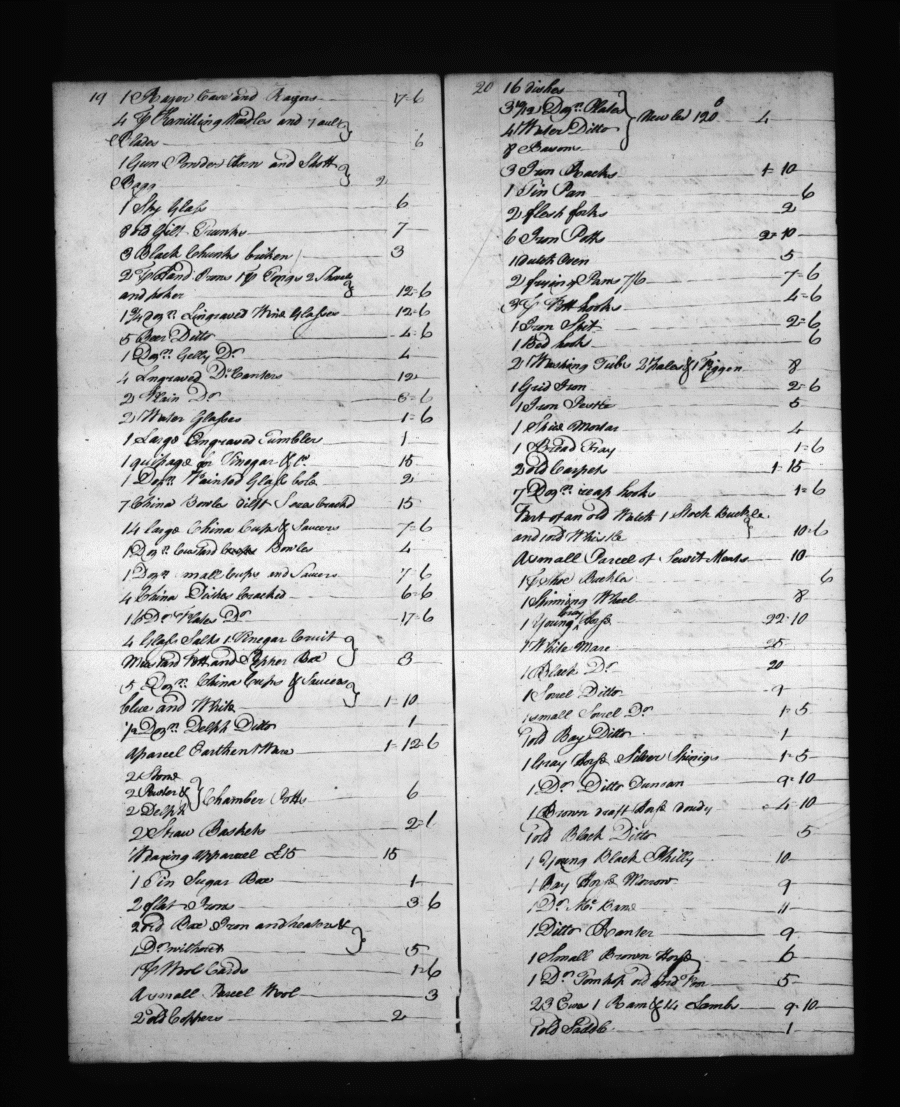 19 1 Razer Case and Razers 17-6
4 Knitting Needles and 7 6
1 Gun Powder Horn and Shott
Bags 2
1 Spy Glass 6
8 old Gilt Trunks 7
3 Black Chunks broken 3
2 pr Hand Irons 1 pr Tongs 2 Shovels &
and poker 12=6
1 Dozn Engraved Wine Glasses 12=6
5 Beer Ditto 4=6
1 Dozn Gelly Do 4
4 Engraved DeCanters 12
2 Plain Do 6
2 Water Glasses 1=6
1 Large Engraved Tumbler 1
1 quipage for Vinegar &c 15
1 Dozn Painted Glass 2
7 China Bowles Some Cracked 15
14 large China Cups & Saucers 7=6
1 Dozn Custard Cups Bowles 4
1 Dozn small Cups and Saucers 7=6
4 China Dishes Cracked 6=6
16 Do Plates Do 17=6
4 Glass Salts 1 Vinegar Cruit
Mustard Pott and Pepper Box 3
5 Dozn China Cups & Saucers
blue and White 1=10
1 Dozn Delph Ditto 1
a parcel Earthen Ware 1=12=6
2 Stone
2 Pewter & Chamber Potts 6
2 Delph
2 Straw Baskets 2=
Waring apparreel £15 15
1 Tin Sugar Box 1
2 flat Irons 3=6
2 old Box Iron and heaters &
1 Do without 5
1 pr Wool Cards 1=6
A small Parcel Wool 3
2 old Coppers 2
20 16 dishes
3 Dozn Plates
4 Water Ditto 120 4
8 Basons
3 Iron Racks 1=10
1 Tin Pan 6
2 flesh forks 2
6 Iron Potts 2=10
1 dutch Oven 5
2 frying Pans 7/6 7=6
3 pr Pott hooks 4=6
1 Iron Spit 2=6
1 Bed hook 6
2 Washing Tubs 2 Pales & 1 Piggon 8
1 Grid Iron 2=6
1 Iron Pestle 5
1 Spice Mortar 4
1 Bread Tray 1=6
2 old Carpets 1=15
7 Dozn reap hooks 1=6
Part of an old Watch 1 Stock Buckle
and old Whisk 10=6
A small Parcel of Sweet Meats 10
1 pr Shoe Buckls 6
1 Spinning Wheel 8
1 Young Gray Horse 22=10
1 White Mare 25
1 Black Do 20
1 Sorrel Ditto 9
1 small Sorrel Do 1=5
1 old Bay Ditto 1
1 Gray Horse Silver 1=5
1 Do Ditto Duncan 9=10
1 Brown draft Horse 4=10
1 old Black Ditto 5
1 Young Black Philly 10
1 Bay Horse 9
1 Do 11
1 Ditto Ranter 9
1 Small Brown Horse 6
1 Do old 5
23 Ewes 1 Ram & 14 Lambs 9=10
1 old Saddle 1